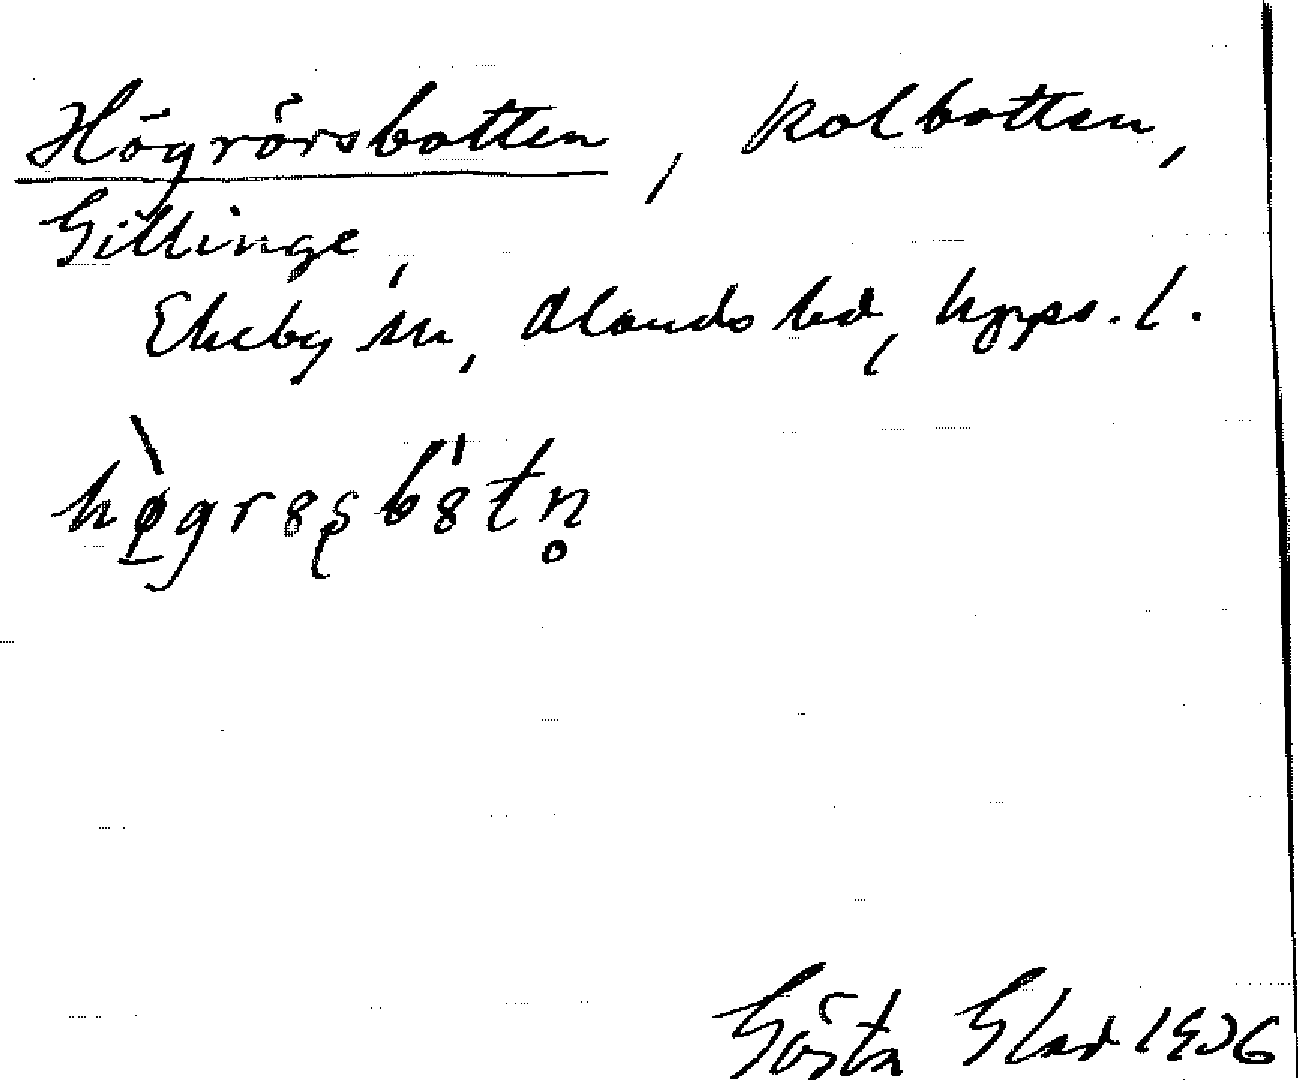 Högrörsbotten, kolbotten,
Gillinge,
Ekeby sn, Olands hd, Upps. l.
hø̀grȣʂbȣ́tn̥
Gösta Glad 1936